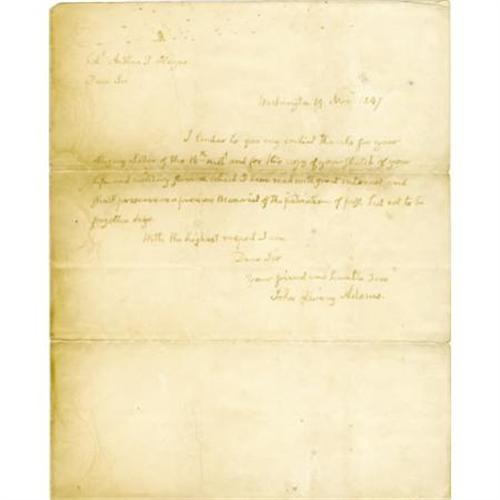 Arthur J.
Dear Sir
Washington 19 Nov. 1847
I tender to you my cordial thanks for your
obliging letter of the 16th inst and for the copy of your sketch of your
life and which I have read with great interest and
shall preserve as a precious Memorial of the of past but not to be
forgotten days.
With the highest respect I am
Dear Sir
Your friend and humble Servt
John Quincy Adams.